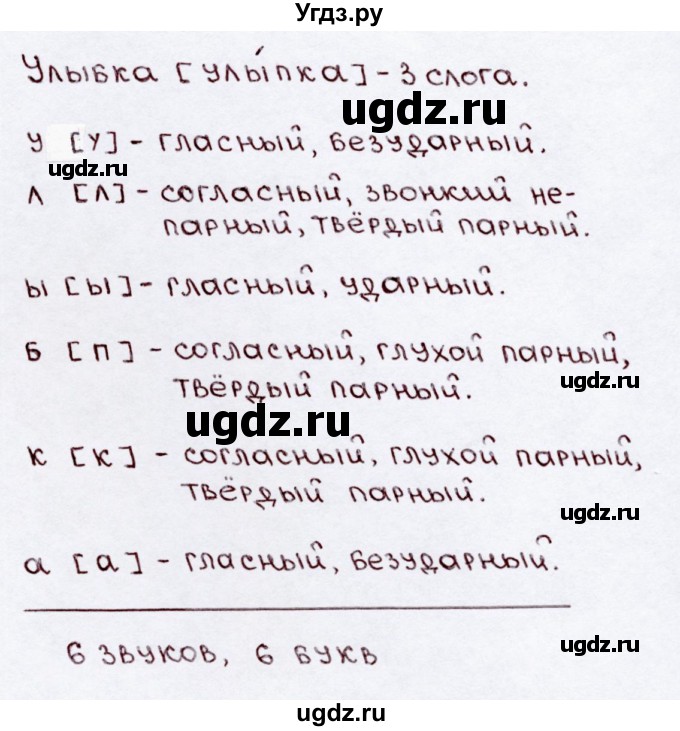 Угдз.ру
Улыбка [улы́пка] - 3 слога.
ugdz.ru
у [у] - гласный, безударный.
ugdz.ru
л [л] - согласный, звонкий не-
парный, твёрдый парный.
ы [ы] - гласный, ударный.
б [п] - согласный, глухой парный,
ugdz.ru
твёрдый парный.
ugdz.ru
к [к] - согласный, глухой парный,
твёрдый парный.
ugdz.ru
а [а] - гласный, безударный.
6 звуков, 6 букв
ugdz.ru
ugdz.ru